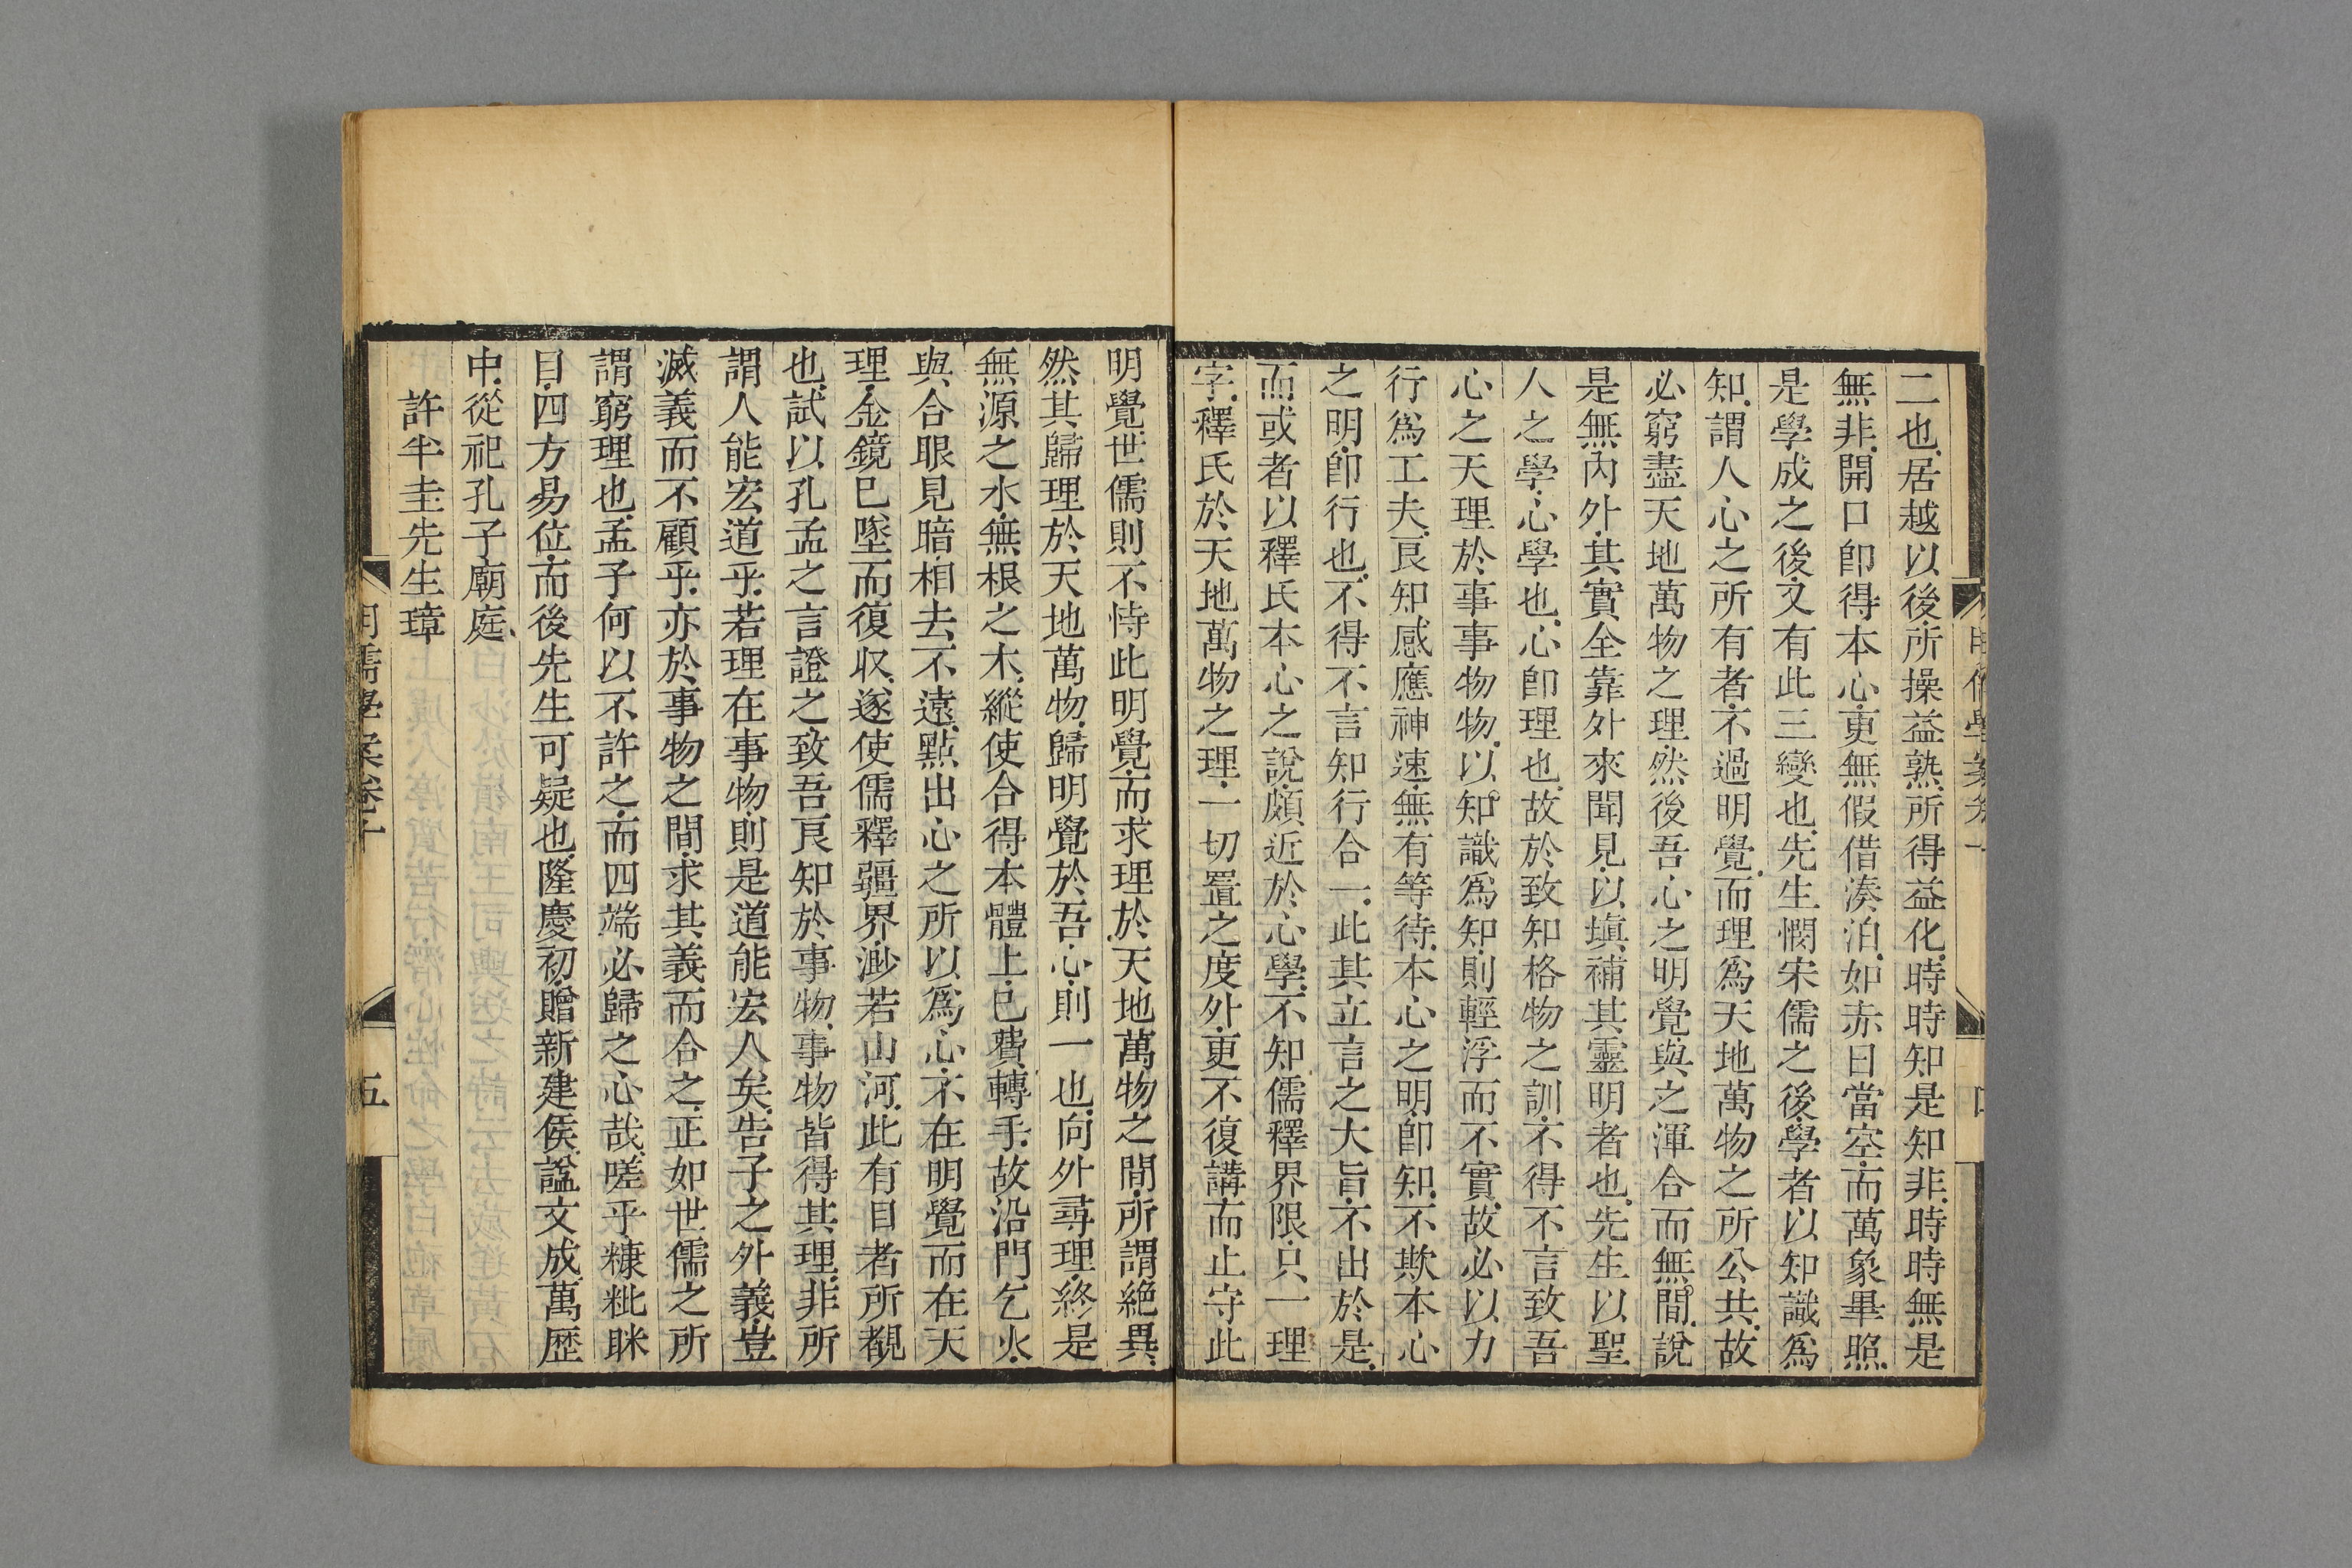 二也居越以後所操益熟所得益化時時知是知非時時無是
無非開口卽得本心更無假借湊泊如赤日當空而萬象畢照
是學成之後又有此三變也先生憫宋儒之後學者以知識爲
知謂人心之所有者不過明覺而理爲天地萬物之所公共故
必窮盡天地萬物之理然後吾心之明覺與之渾合而無間說
是無內外其實全靠外來聞見以塡補其靈明者也先生以聖
人之學心學也心卽理也故於致知格物之訓不得不言致吾
心之天理於事事物物以知識爲知則輕浮而不實故必以力
行爲工夫良知感應神速無有等待本心之明卽知不欺本心
之明卽行也不得不言知行合一此其立言之大旨不出於是
而或者以釋氏本心之說頗近於心學不知儒釋界限只一理
字釋氏於天地萬物之理一切置之度外更不復講而止守此
明覺世儒則不恃此明覺而求理於天地萬物之間所謂絕異
然其歸理於天地萬物歸明覺於吾心則一也向外尋理終是
無源之水無根之木縱使合得本體上已費轉手故沿門乞火
與合眼見暗相去不遠點出心之所以爲心不在明覺而在天
理金鏡已墜而復収遂使儒釋疆界渺若山河此有目者所覩
也試以孔孟之言證之致吾良知於事物事物皆得其理非所
謂人能宏道乎若理在事物則是道能宏人矣告子之外義豈
滅義而不顧乎亦於事物之間求其義而合之正如世儒之所
謂窮理也孟子何以不許之而四端必歸之心哉嗟乎糠粃眯
目四方易位而後先生可疑也隆慶初贈新建侯諡文成萬歷
中從祀孔子廟庭
許半圭先生璋
明儒學案卷十
五